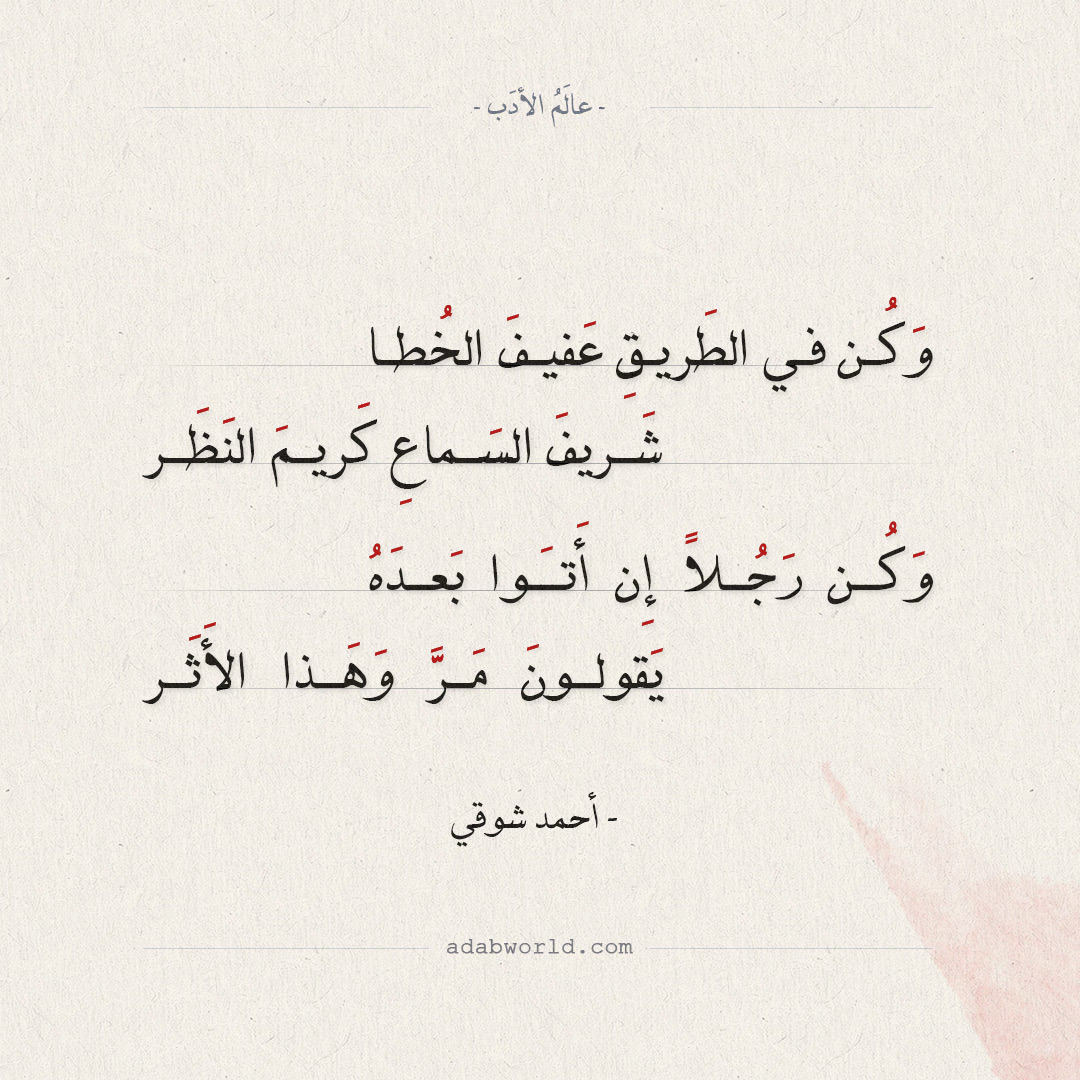 - عالَمُ الأدَب -
وَكُـن فـي الطَريـقِ عَفيـفَ الخُطـا
شَـريفَ السَـماعِ كَريـمَ النَظَـر
وَكُـن رَجُـلاً إِن أَتَـوا بَعـدَهُ
يَقولـونَ مَـرَّ وَهَـذا الأَثَـر
- أحمد شوقي
adabworld.com